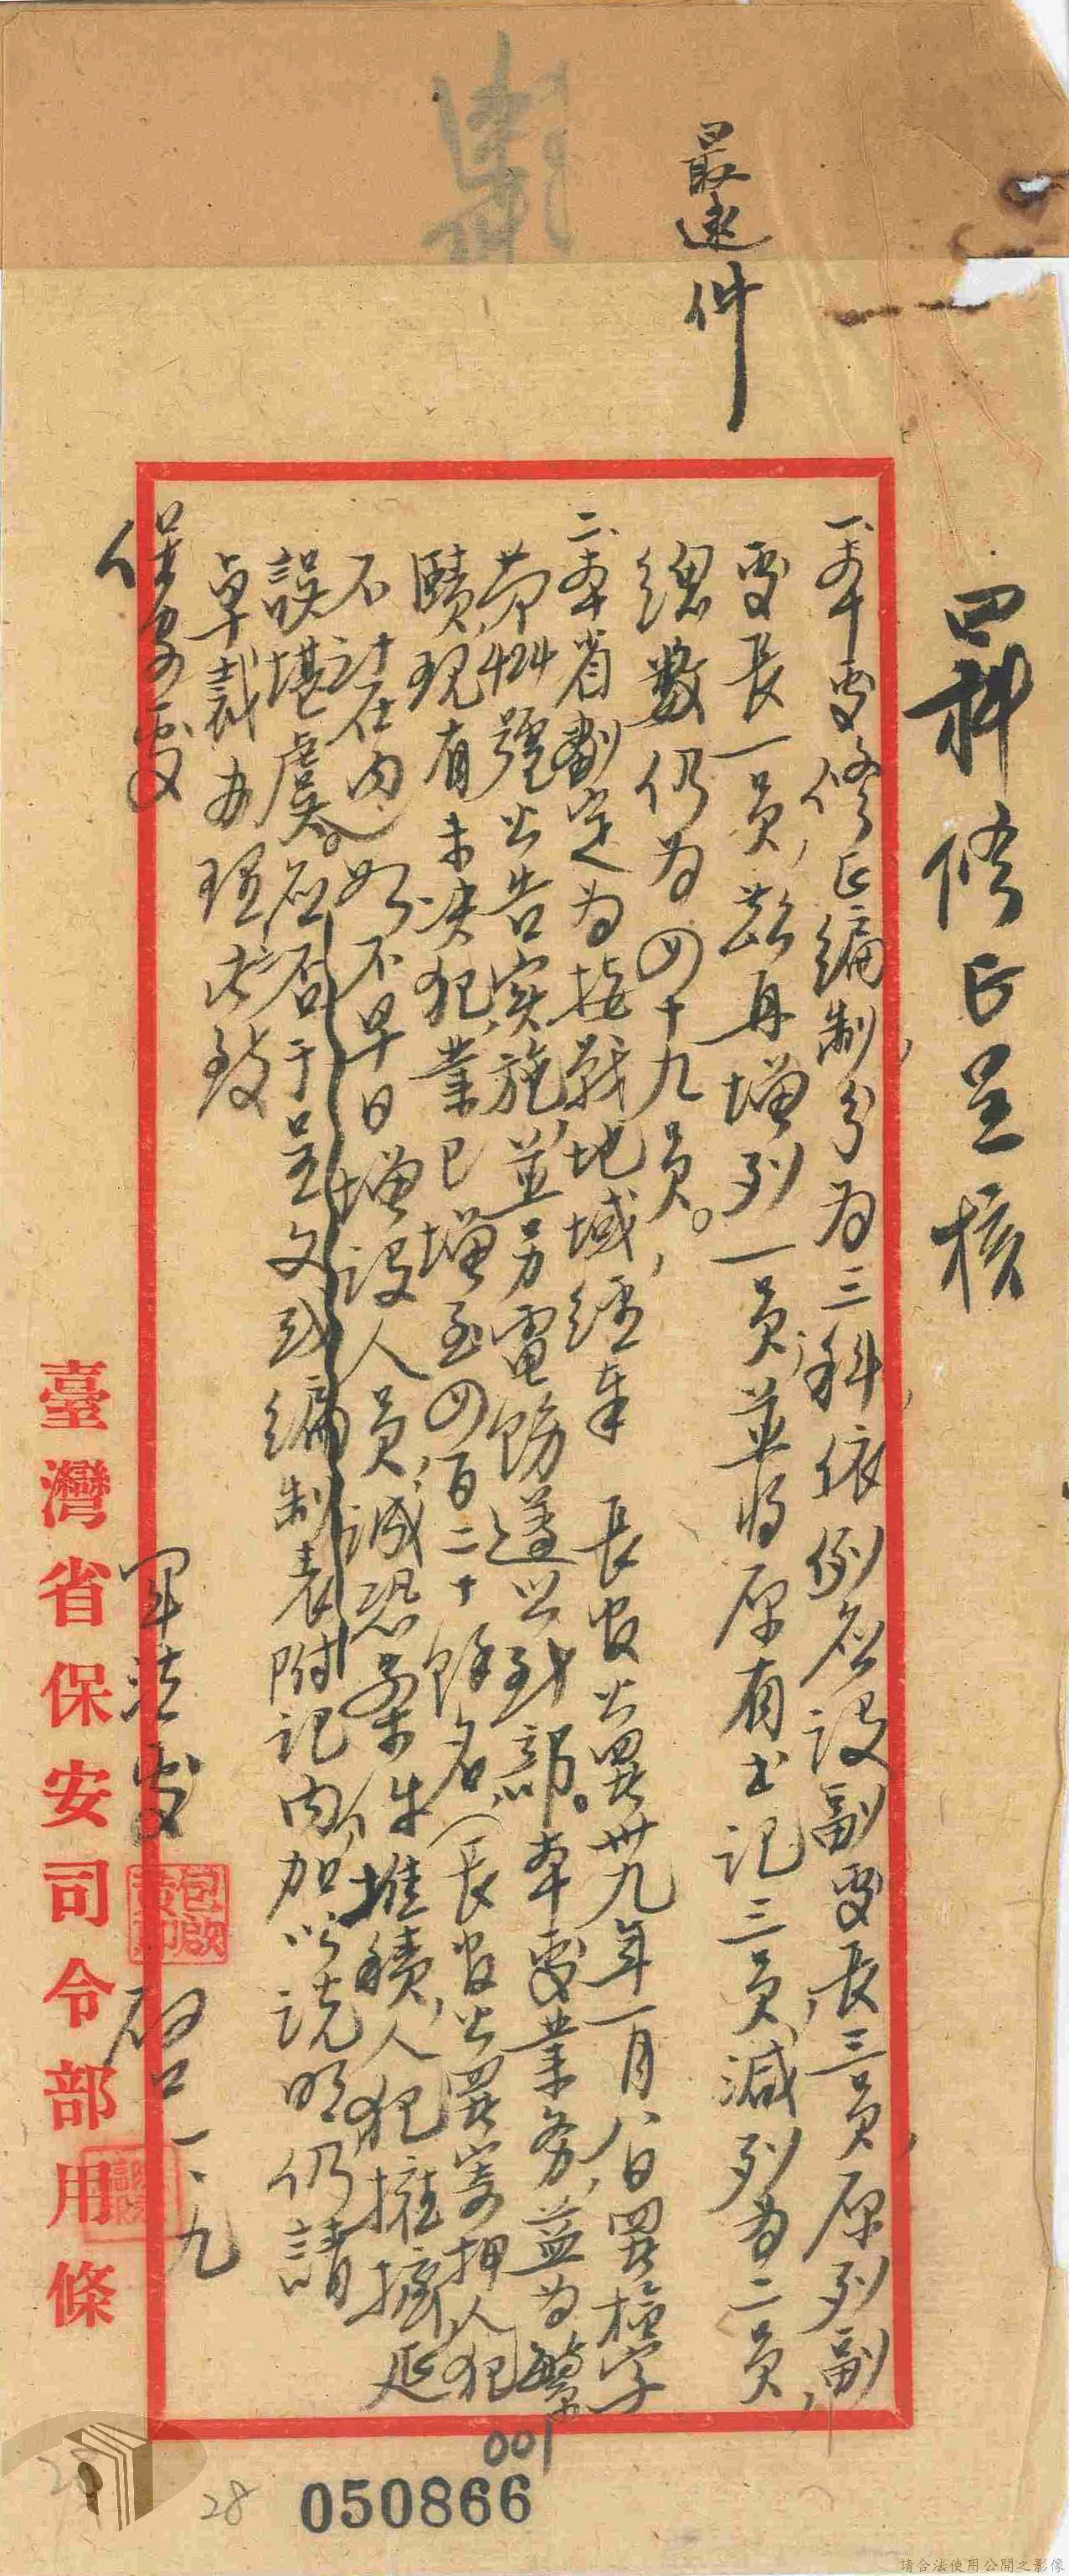 最速件
四科修正呈核
一、本處修正編制分為三科，依例應設副處長二員，原列副
處長一員，茲再增列一員，並將原有書記三員減列為二員，
總數仍為四十九員。
二、本省劃定為接戰地域，經奉 長官公署卅九年一月八日署檢字
第424號公告實施，並另電飭遵照到部。本處業務益為繁
賾，現有未決犯業已增至四百二十餘名（長官公署寄押人犯
不計在內），如不早日增設人員，誠恐案件堆積，人犯擁擠，延
誤堪虞。應否于呈文或編制表附記內，加以說明，仍請
卓裁辦理 此致
保安處
軍法處 啟 一、九
臺灣省保安司令部用條
001
050866
28
請合法使用公開之影像